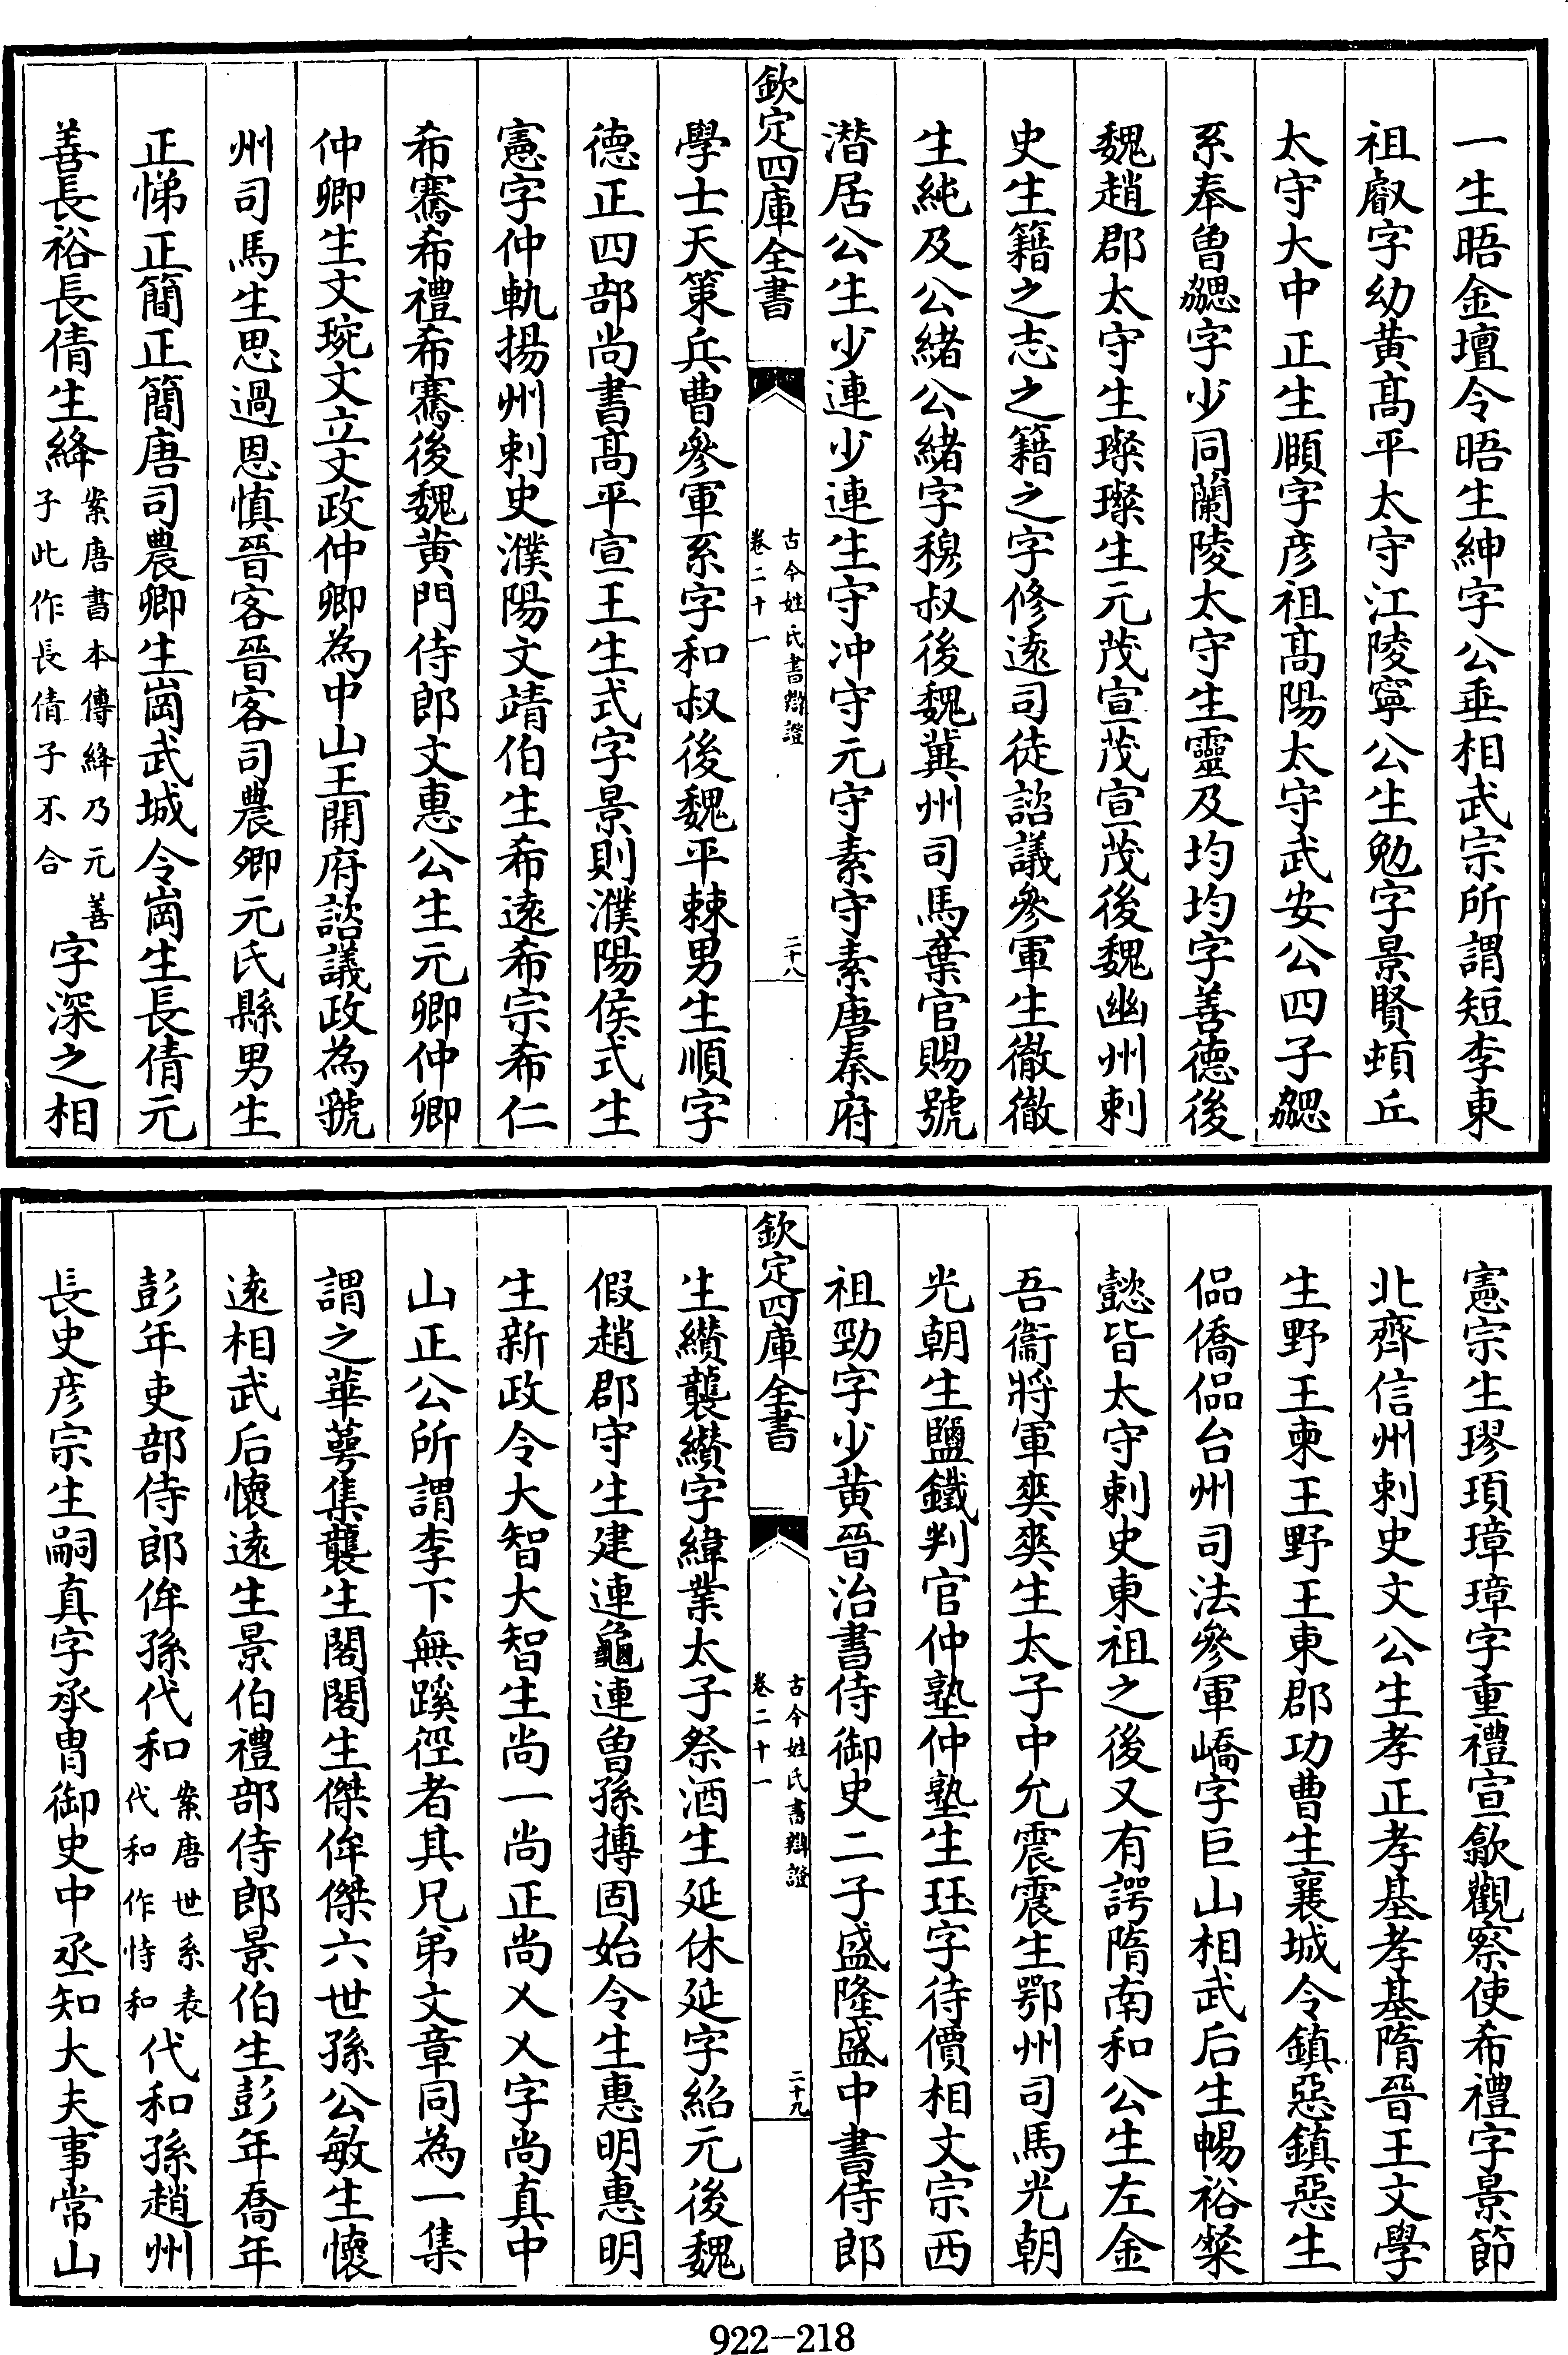 一生晤金壇令晤生紳字公垂相武宗所謂短李東
祖叡字幼黄髙平太守江陵寧公生勉字景賢頓丘
太守大中正生頤字彦祖髙陽太守武安公四子勰
系奉曽勰字少同蘭陵太守生靈及均均字善德後
魏趙郡太守生璨璨生元茂宣茂宣茂後魏幽州刺
史生籍之志之籍之字修逺司徒諮議參軍生徹徹
生純及公緒公緒字穆叔後魏冀州司馬棄官賜號
潜居公生少連少連生守冲守元守素守素唐秦府
欽定四庫全書
古今姓氏書辯證
卷二十一
二十八
學士天策兵曹參軍系字和叔後魏平棘男生順字
德正四部尚書髙平宣王生式字景則濮陽侯式生
憲字仲軌揚州刺史濮陽文靖伯生希逺希宗希仁
希騫希禮希騫後魏黄門侍郎文惠公生元卿仲卿
仲卿生文琬文立文政仲卿為中山王開府諮議政為虢
州司馬生思過恩慎晉客晉客司農卿元氏縣男生
正悌正簡正簡唐司農卿生崗武城令崗生長倩元
善長裕長倩生絳
案唐書本傳絳乃元善
子此作長倩子不合
字深之相
憲宗生璆頊璋璋字重禮宣歙觀察使希禮字景節
北齊信州刺史文公生孝正孝基孝基隋晉王文學
生野王東王野王東郡功曹生襄城令鎮惡鎮惡生
偘僑偘台州司法參軍嶠字巨山相武后生暢裕粲
懿皆太守刺史東祖之後又有諤隋南和公生左金
吾衞將軍奕奕生太子中允震震生鄂州司馬光朝
光朝生鹽鐵判官仲塾仲塾生珏字待價相文宗西
祖勁字少黄晉治書侍御史二子盛隆盛中書侍郎
欽定四庫全書
古今姓氏書辯證
卷二十一
二十九
生纉襲纉字緯業太子祭酒生延休延字紹元後魏
假趙郡守生建連龜連曽孫摶固始令生惠明惠明
生新政令大智大智生尚一尚正尚乂乂字尚真中
山正公所謂李下無蹊徑者其兄弟文章同為一集
謂之華萼集襲生閣閣生傑侔傑六世孫公敏生懷
逺相武后懷逺生景伯禮部侍郎景伯生彭年喬年
彭年吏部侍郎侔孫代和
案唐世系表
代和作恃和
代和孫趙州
長史彦宗生嗣真字承胄御史中丞知大夫事常山
922-218